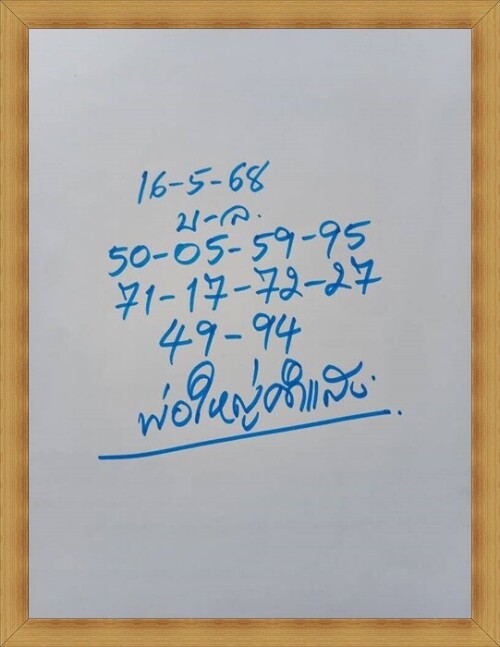 16-5-68
บ-ล.
50-05-59-95
71-17-72-27
49-94
พ่อใหญ่คำแสง.